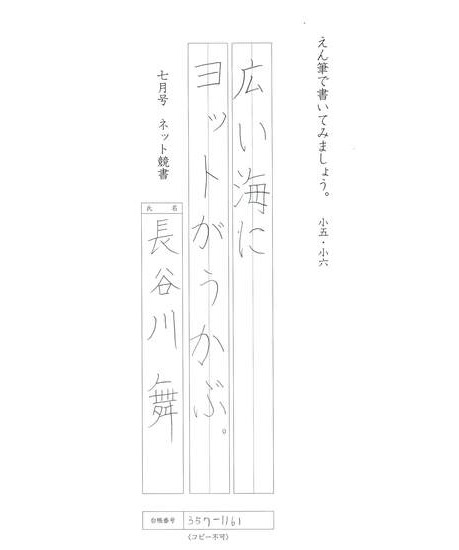 えん筆で書いてみましょう。 小五・小六
広い海に
ヨットがうかぶ。
七月号 ネット競書
氏名
長谷川舞
台帳番号 357-1161
(コピー不可)